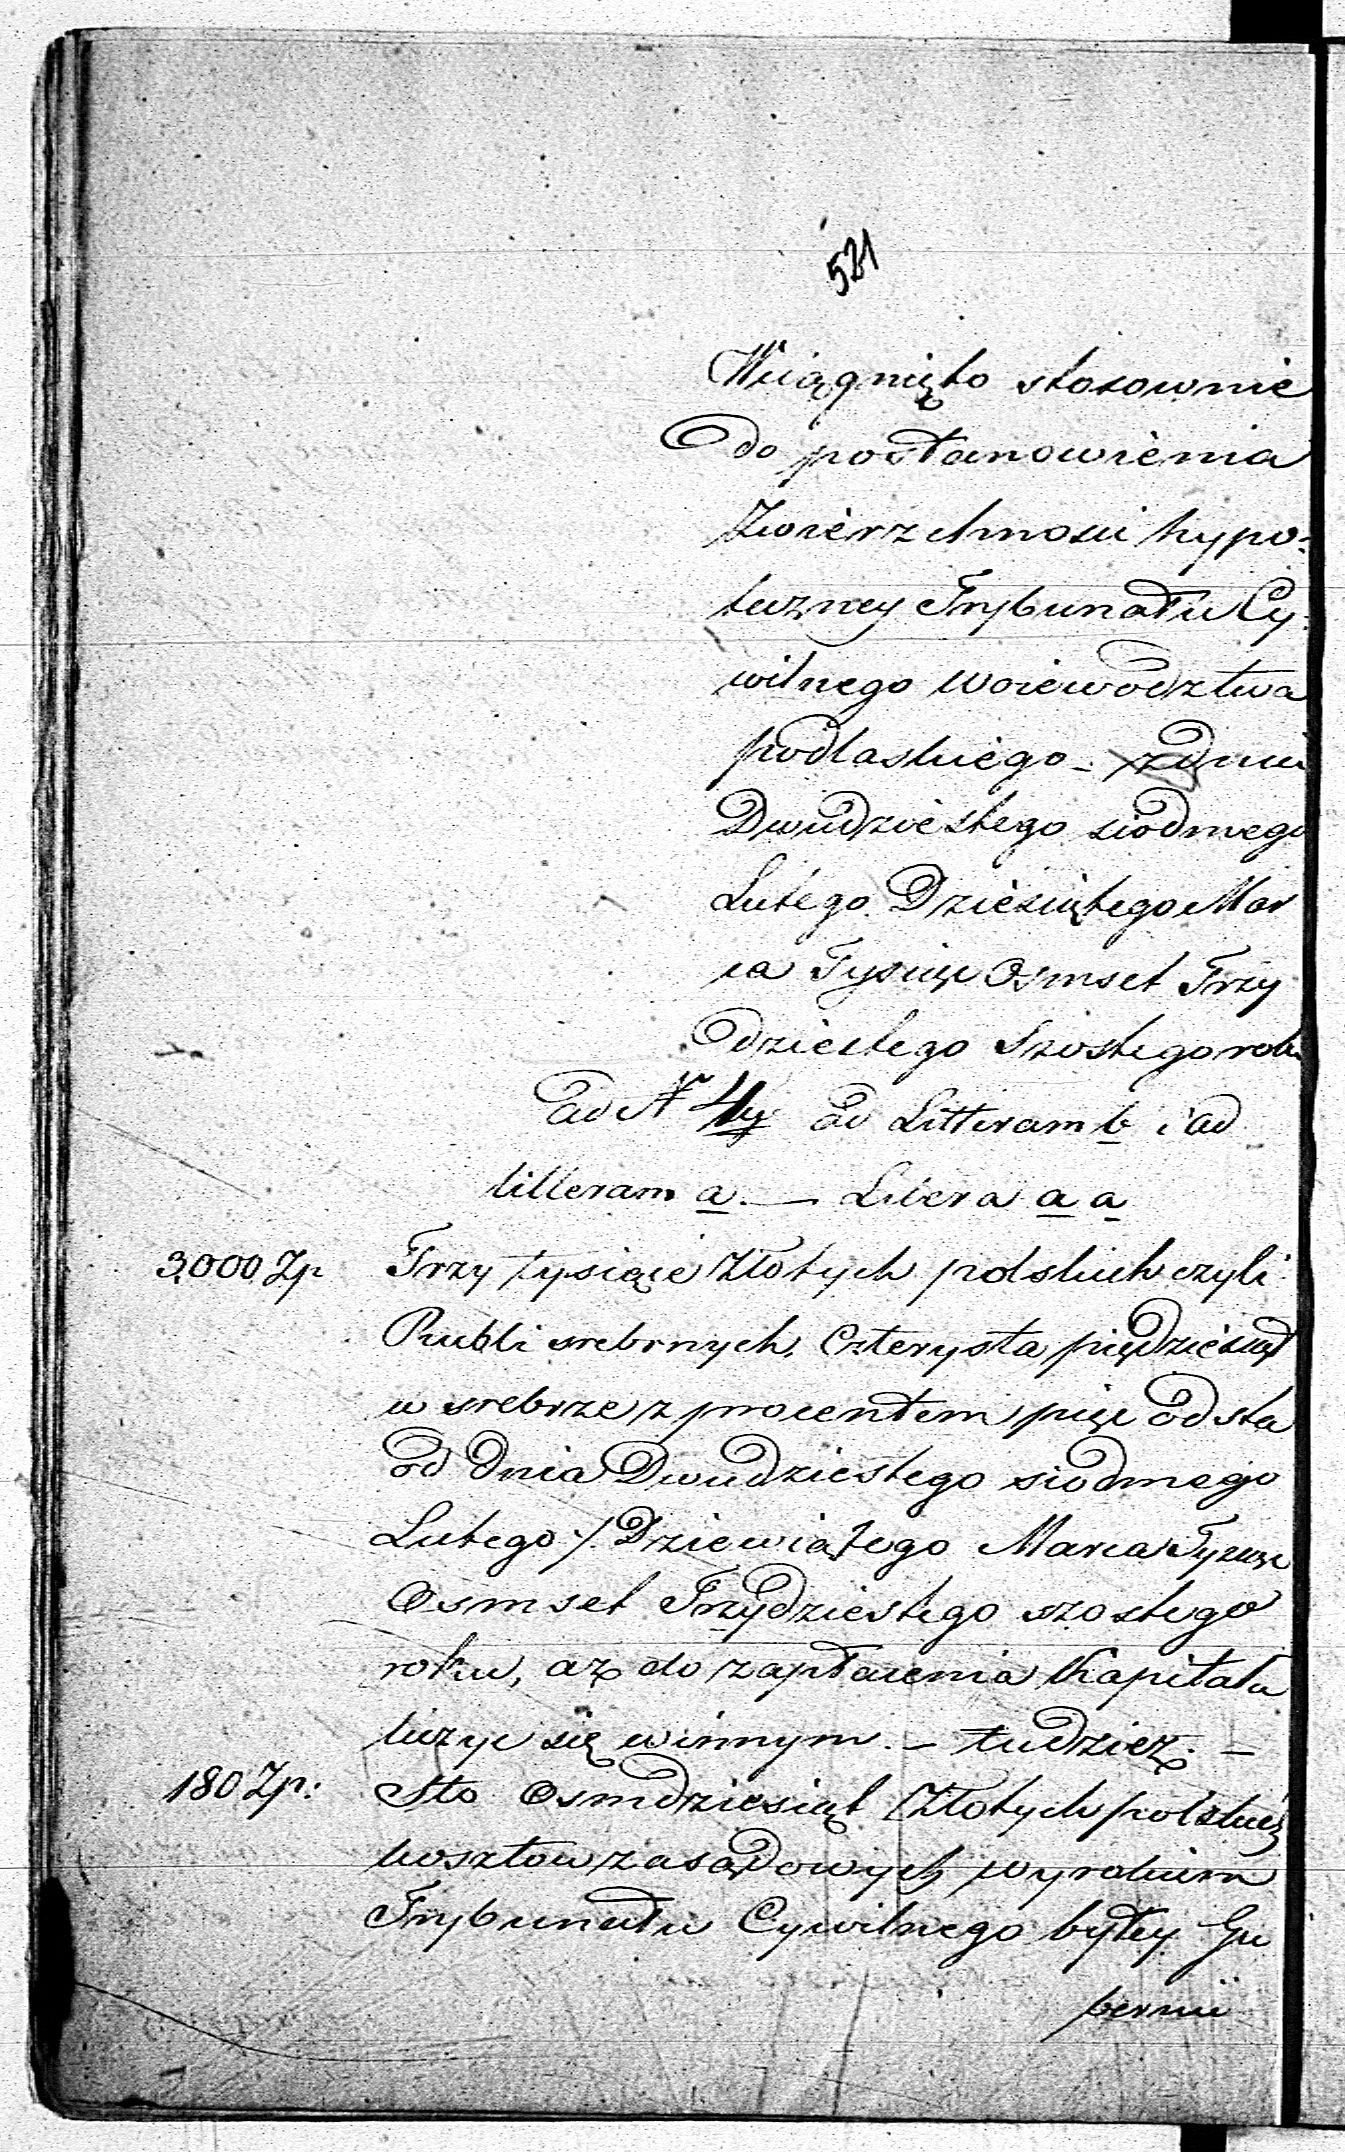 521
Wciągnięto stosownie
do postanowienia
Zwierzchnosci hypo=
teczney Trybunału Cy:
wilnego Woiewodztwa
podlaskiego - z dnia
Dwudziestego siodmego
Lutego Dziesiętego Mar
ca Tysiąc Osmset Trzy
dziestego Szostego roku
ad N 4ty ad Litteram b i ad
litteram a. — Litera a a
3,000 Zp Trzy tysiące Złotych polskich czyli
Rubli srebrnych, Czterysta pięćdziesiąt
w srebrze z procentem pięć od sta
od Dnia Dwudziestego siodmego
Lutego /. Dziewiątego Marca Tysiąc
Osmset Trzydziestego szostego
roku, aż do zapłacenia Kapitału
liczyc się winnym. — tudzież. —
180 Zp: Sto Osmdziesiąt Złotych polskich
kosztow zasądowych wyrokiem
Trybunału Cywilnego byłey Gu
bernii